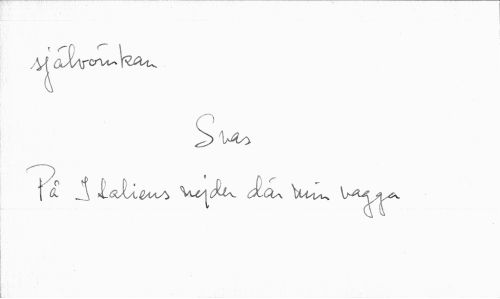 självömkan
Svas
På Italiens nejder där min vagga